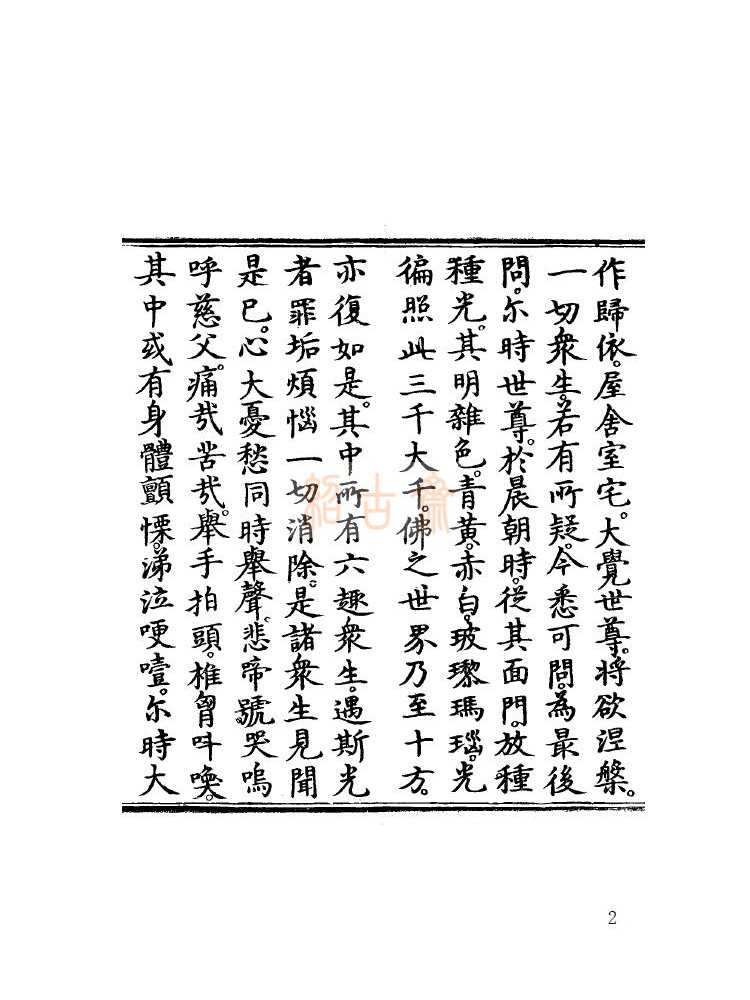 作歸依。屋舍室宅。大覺世尊。將欲涅槃。
一切衆生。若有所疑。今悉可問。為最後
問。尒時世尊。於晨朝時。從其面門。放種
種光。其明雜色。青黃。赤白。玻瓈瑪瑙。光
徧照此三千大千。佛之世界乃至十方。
亦復如是。其中所有六趣衆生。遇斯光
者罪垢煩惱一切消除。是諸衆生見聞
是已。心大憂愁同時舉聲。悲啼號哭嗚
呼慈父。痛哉苦哉。舉手拍頭。椎胷叫喚。
其中或有身體顫慄。涕泣哽噎。尒時大
紹古齋
2